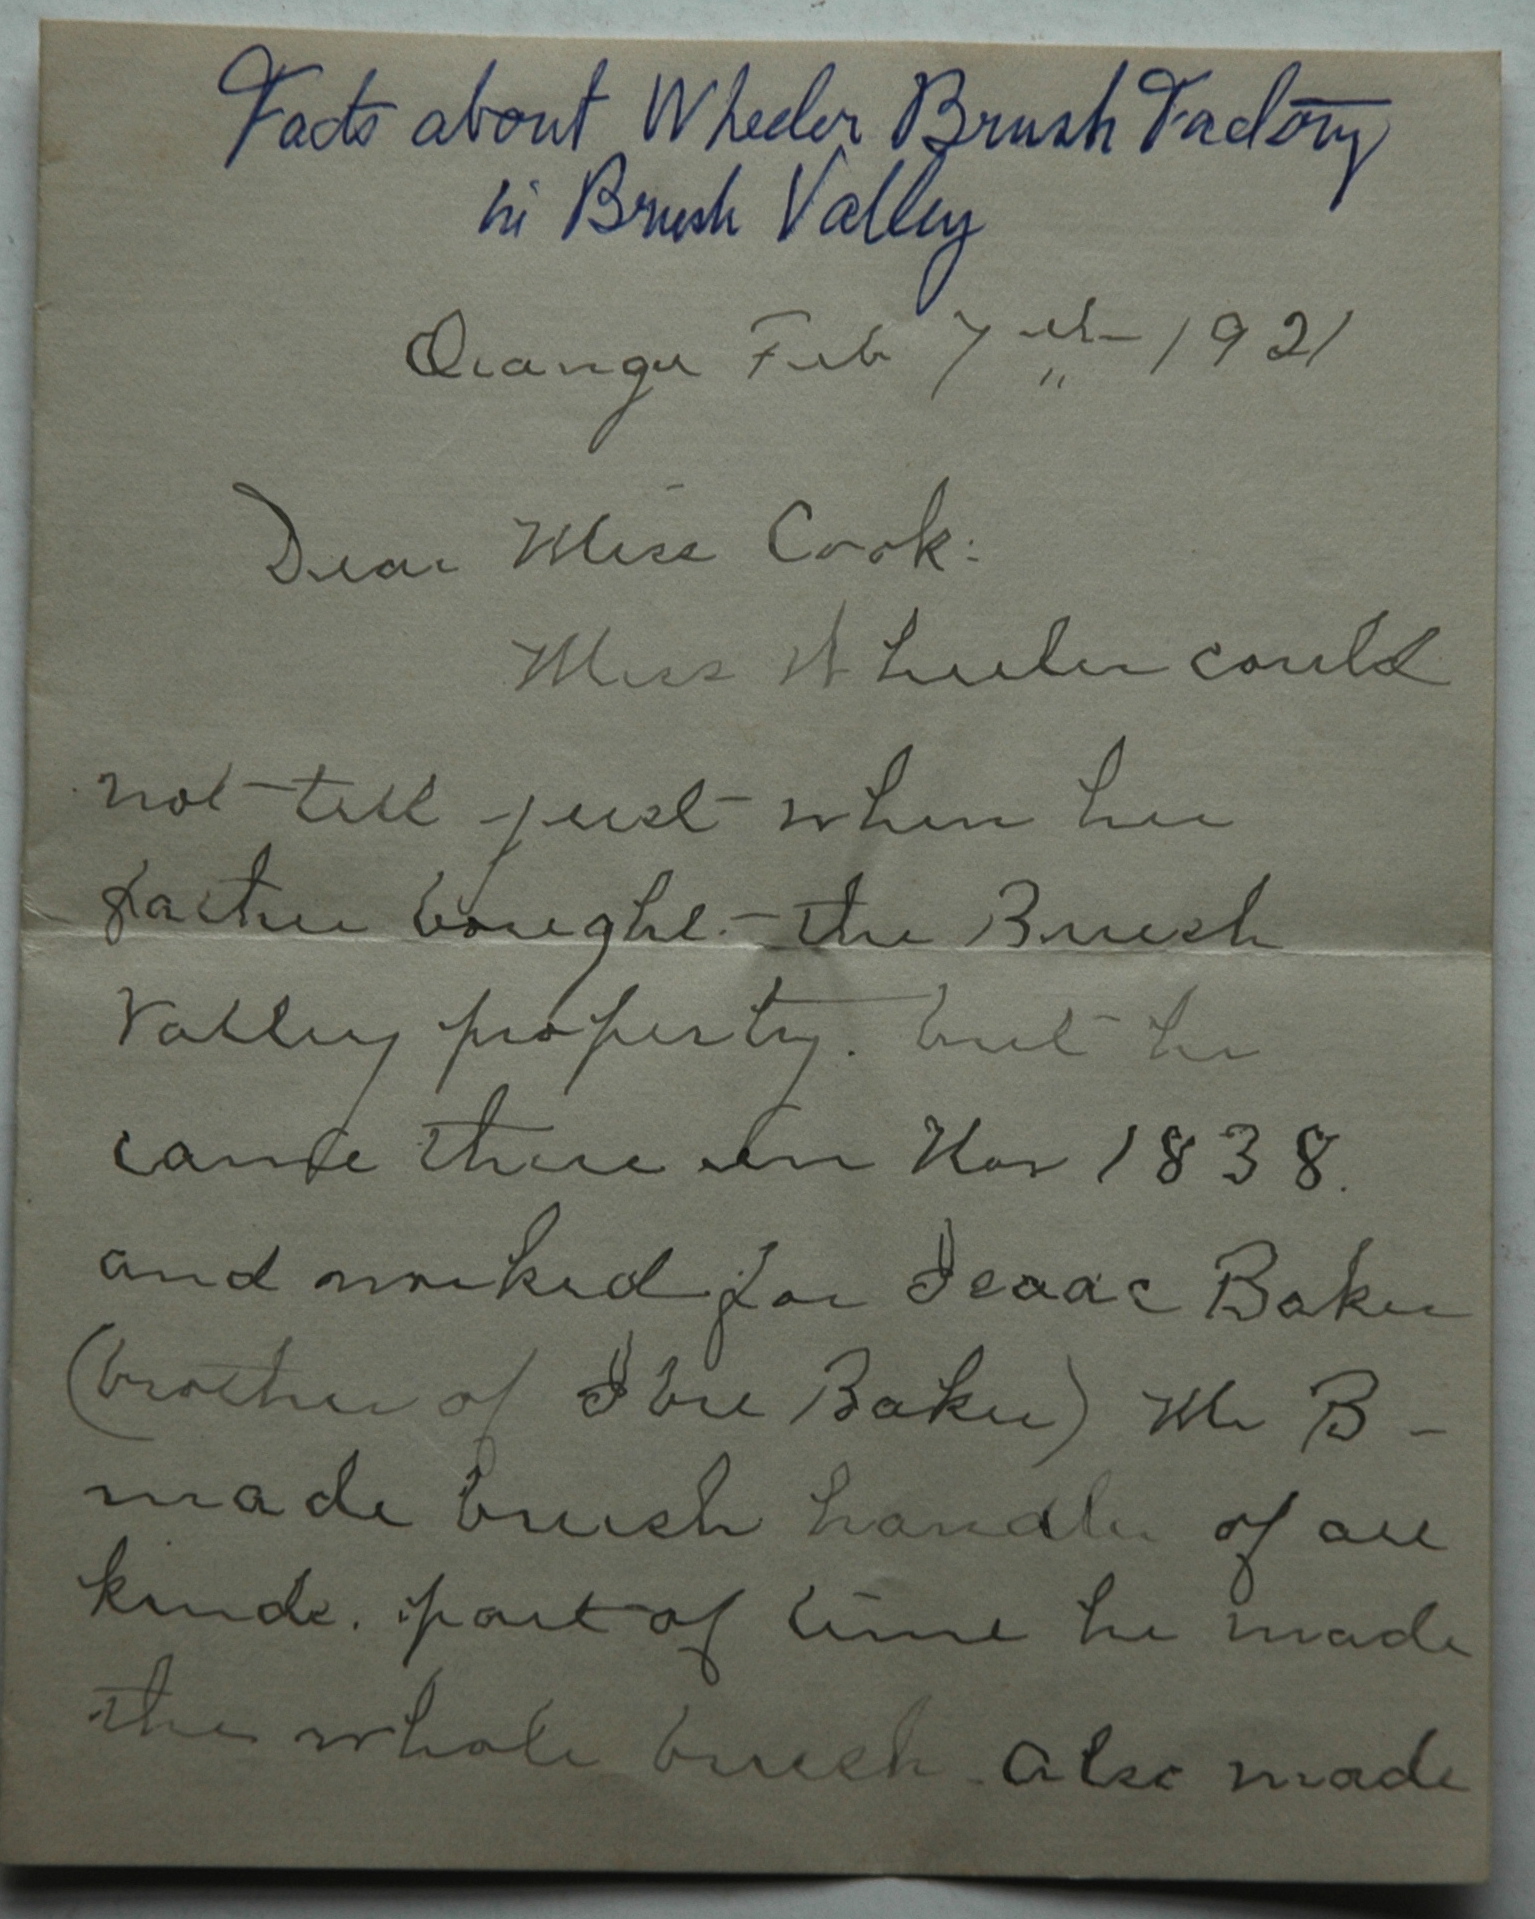 Facts about Wheeler Brush Factory
in Brush Valley
Orange Feb 7th 1921
Dear Miss Cook:
Miss Wheeler could
not tell just when her
father bought the Brush
Valley property. but he
came there in Nov 1838.
and worked for Isaac Baker
(brother of Ibre Baker) Mr B -
made brush handles of all
kinds. part of time he made
the whole brush. also made